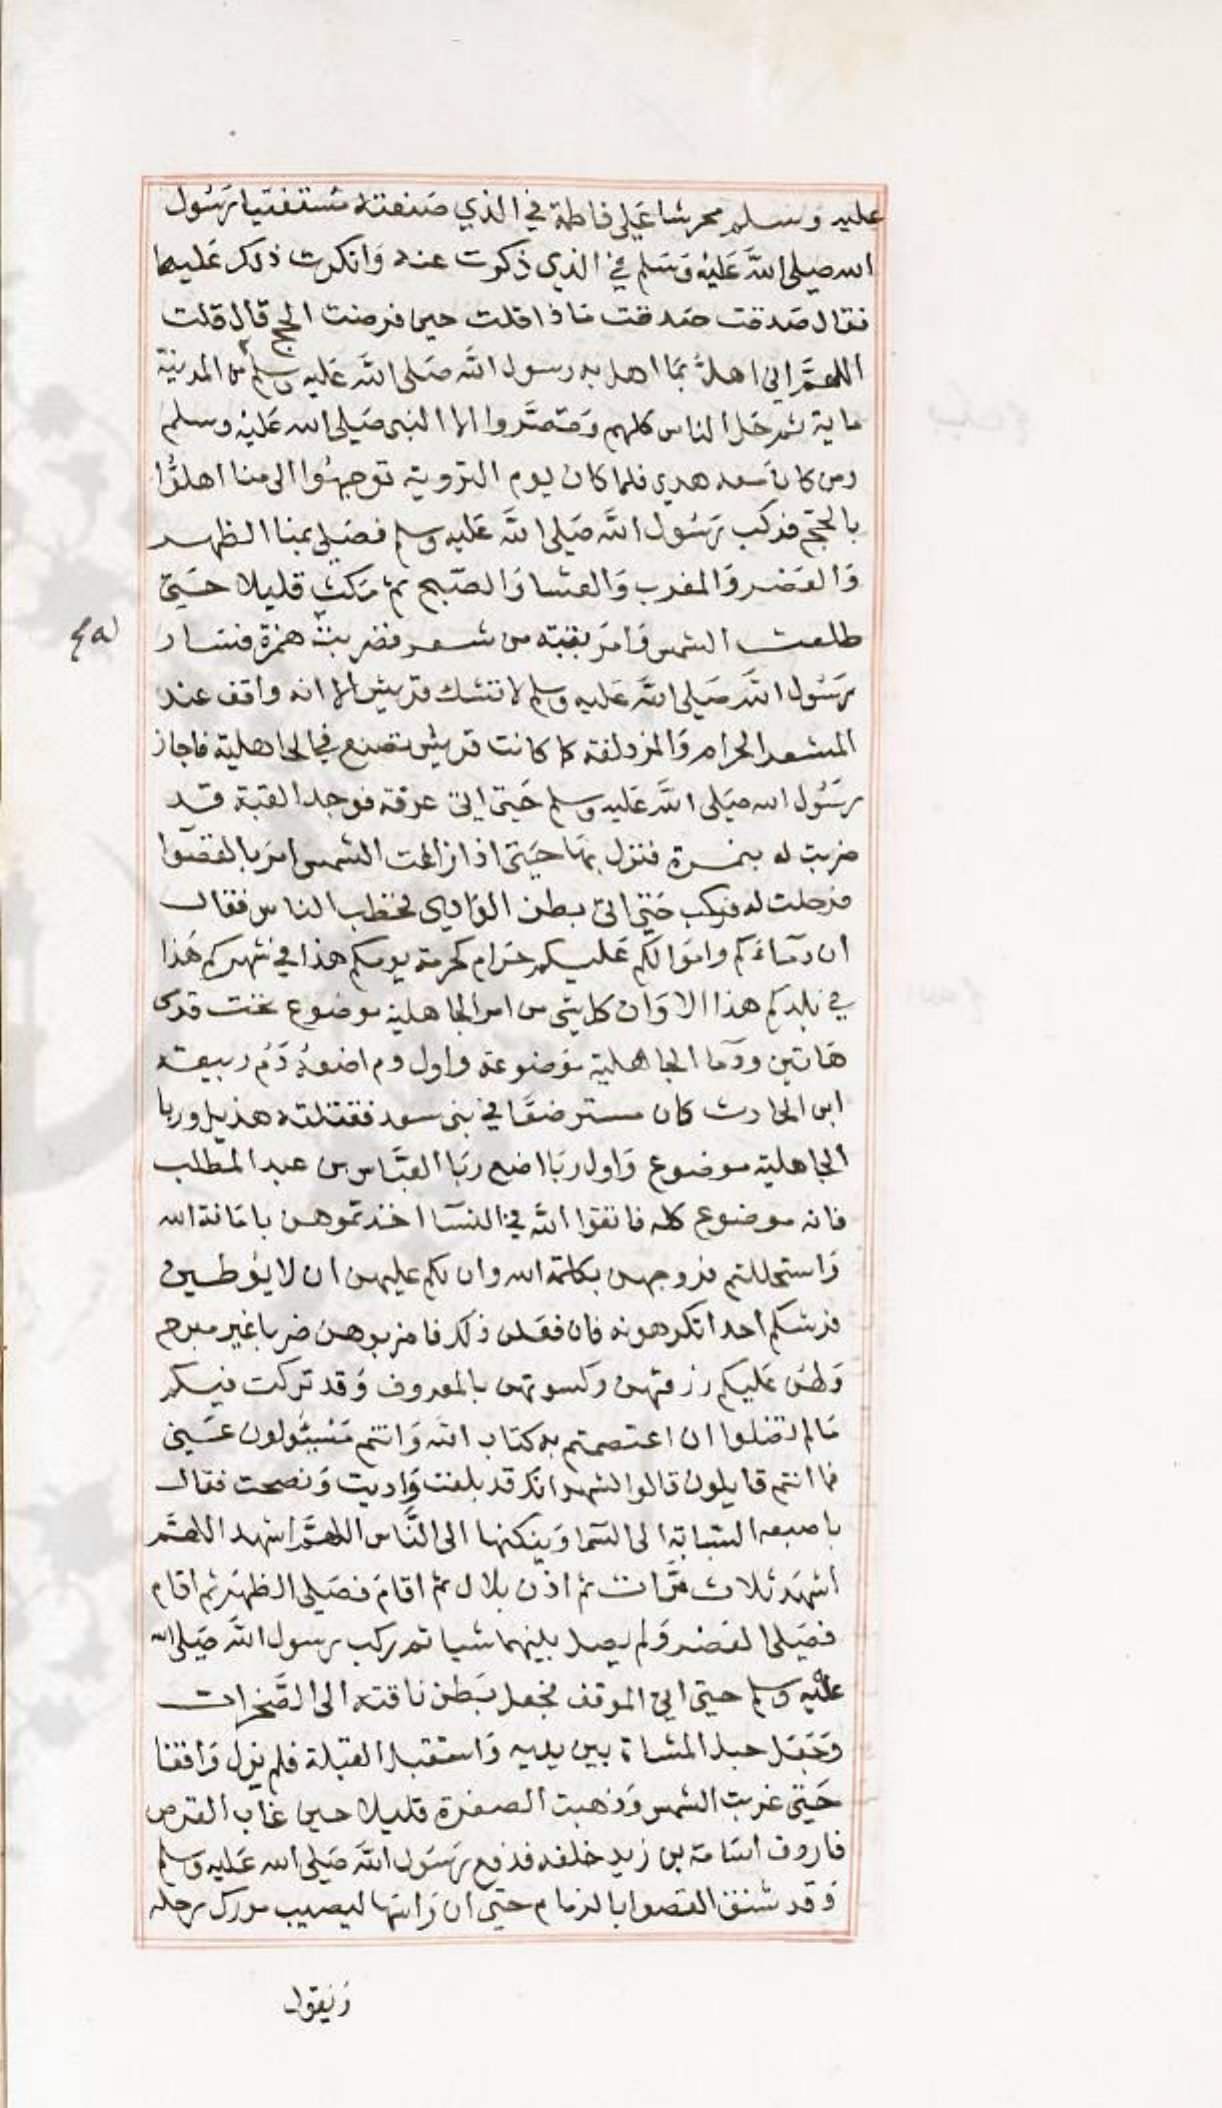 عليه وسلم محرشا على فاطمة في الذي صنعته مستفتيا رسول
الله صلى الله عليه وسلم في الذي ذكرت عنه وانكرت ذلك عليها
فقال صدقت صدقت ماذا قلت حين فرضت الحج قال قلت
اللهم اني اهل بما اهل به رسول الله صلى الله عليه وسلم من المدينة
ماية ثم حل الناس كلهم وقصروا الا النبي صلى الله عليه وسلم
ومن كان معه هدي فلما كان يوم التروية توجهوا الى منا اهلوا
بالحج فركب رسول الله صلى الله عليه وسلم فصلى بمنا الظهر
والعصر والمغرب والعشا والصبح ثم مكث قليلا حتى
طلعت الشمس وامر بقبته من شعر فضربت بنمرة فسار
رسول الله صلى الله عليه وسلم لا تشك قريش الا انه واقف عند
المشعر الحرام والمزدلفة كما كانت قريش تصنع في الجاهلية فاجاز
رسول الله صلى الله عليه وسلم حتى اتى عرفة فوجد القبة قد
ضربت له بنمرة فنزل بها حتى اذا زاغت الشمس امر بالقصوا
فرحلت له فركب حتى اتى بطن الوادي فخطب الناس فقال
ان دماءكم واموالكم عليكم حرام كحرمة يومكم هذا في شهركم هذا
في بلدكم هذا الا وان كل شي من امر الجاهلية موضوع تحت قدمى
هاتين ودما الجاهلية موضوعة واول دم اضعه دم ربيعة
ابن الحارث كان مسترضعا في بني سعد فقتلته هذيل وربا
الجاهلية موضوع واول ربا اضع ربا العباس بن عبد المطلب
فانه موضوع كله فاتقوا الله في النسآ اخذتموهن بامانة الله
واستحللتم فروجهن بكلمة الله وان لكم عليهن ان لا يوطين
فرشكم احدا تكرهونه فان فعلن ذلك فاضربوهن ضربا غير مبرح
ولهن عليكم رزقهن وكسوتهن بالمعروف وقد تركت فيكم
مالم تضلوا ان اعتصمتم به كتاب الله وانتم مسئولون عني
فما انتم قايلون قالوا نشهد انك قد بلغت واديت ونصحت فقال
باصبعه السبابة الى السما وينكتها الى الناس اللهم اشهد اللهم
اشهد ثلاث مرات ثم اذن بلال ثم اقام فصلى الظهر ثم اقام
فصلى العصر ولم يصل بينهما شيا ثم ركب رسول الله صلى الله
عليه وسلم حتى اتى الموقف فجعل بطن ناقته الى الصخرات
وجعل حبل المشاة بين يديه واستقبل القبلة فلم يزل واقفا
حتى غربت الشمس وذهبت الصفرة قليلا حين غاب القرص
فاردف اسامة بن زيد خلفه فدفع رسول الله صلى الله عليه وسلم
وقد شنق القصوا بالزمام حتى ان راسها ليصيب مورك رحله
ويقول